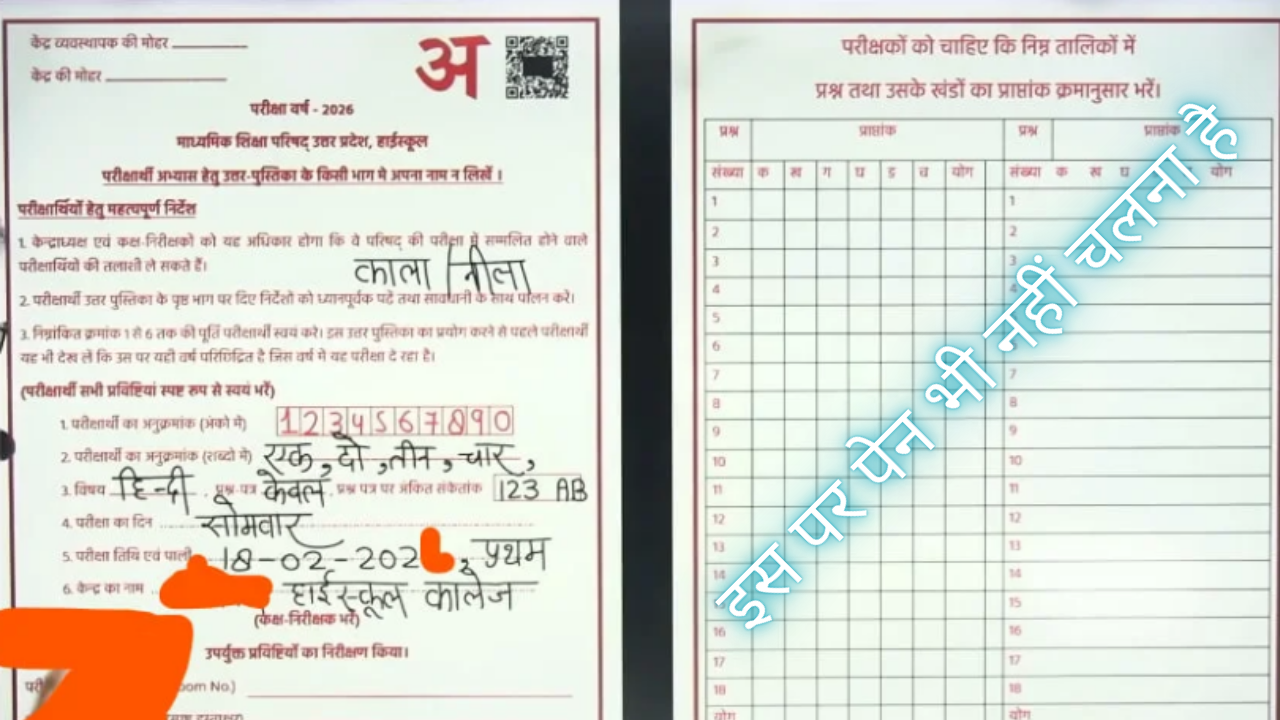 केंद्र व्यवस्थापक की मोहर
केंद्र की मोहर
अ
परीक्षा वर्ष - 2026
माध्यमिक शिक्षा परिषद् उत्तर प्रदेश, हाईस्कूल
परीक्षार्थी अभ्यास हेतु उत्तर-पुस्तिका के किसी भाग मे अपना नाम न लिखें ।
परीक्षार्थियों हेतु महत्वपूर्ण निर्देश
1. केन्द्राध्यक्ष एवं कक्ष-निरीक्षकों को यह अधिकार होगा कि वे परिषद् की परीक्षा में सम्मलित होने वाले
परीक्षार्थियों की तलाशी ले सकते हैं।
काला / नीला
2. परीक्षार्थी उत्तर पुस्तिका के पृष्ठ भाग पर दिए निर्देलों को ध्यानपूर्वक पढ़ें तथा सावधानी के साथ पालन करें।
3. निम्नांकित क्रमांक 1 से 6 तक की पूर्ति परीक्षार्थी स्वयं करे। इस उत्तर पुस्तिका का प्रयोग करने से पहले परीक्षार्थी
यह भी देख लें कि उस पर यही वर्ष परिचिह्नित है जिस वर्ष मे यह परीक्षा दे रहा है।
(परीक्षार्थी सभी प्रविष्टियां स्पष्ट रुप से स्वयं भरें)
1. परीक्षार्थी का अनुक्रमांक (अंको में) 1 2 3 4 5 6 7 8 9 0
2. परीक्षार्थी का अनुक्रमांक (शब्दो में) एक, दो, तीन, चार,
3. विषय हिन्दी प्रश्न-पत्र केवल प्रश्न पत्र पर अंकित संकेतांक 123 AB
4. परीक्षा का दिन सोमवार
5. परीक्षा तिथि एवं पाली 18-02-202 , प्रथम
6. केन्द्र का नाम हाईस्कूल कालेज
(कक्ष-निरीक्षक भरें)
उपर्युक्त प्रविष्टियों का निरीक्षण किया।
oom No.)
परीक्षकों को चाहिए कि निम्न तालिकों में
प्रश्न तथा उसके खंडों का प्राप्तांक क्रमानुसार भरें।
प्रश्न प्राप्तांक प्रश्न प्राप्तांक
संख्या क ख ग घ ड च योग संख्या क ख घ योग
1 1
2 2
3 3
4 4
5
6
7 7
8 8
9 9
10 10
11 11
12 12
13 13
14 14
15
16 16
17 17
18 18
योग योग
इस पर पेन भी नहीं चलना है